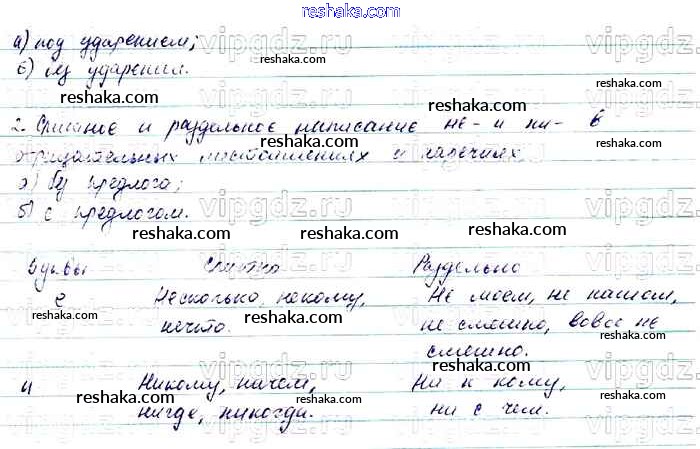 reshaka.com
а) под ударением;
б) без ударения.
2. Слитное и раздельное написание не- и ни- в
отрицательных местоимениях и наречиях
а) без предлога;
б) с предлогом.
Буквы Слитно Раздельно
е Несколько, некому, Не моем, не нашем,
нечто. не смешно, вовсе не
смешно.
и Никому, ничем, Ни к кому,
нигде, никогда. ни с чем.